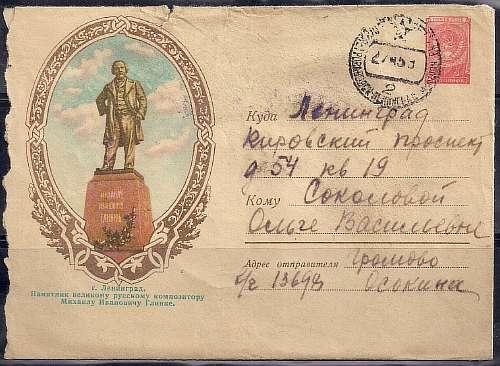 Куда Ленинград
Кировский проспект
д 54 кв 19
Кому Соколовой
Ольге Васильевне
Адрес отправителя Громово
п/я 13698 Осокина
МИХАИЛУ
ИВАНОВИЧУ
ГЛИНКЕ
г. Ленинград.
Памятник великому русскому композитору
Михаилу Ивановичу Глинке.
2